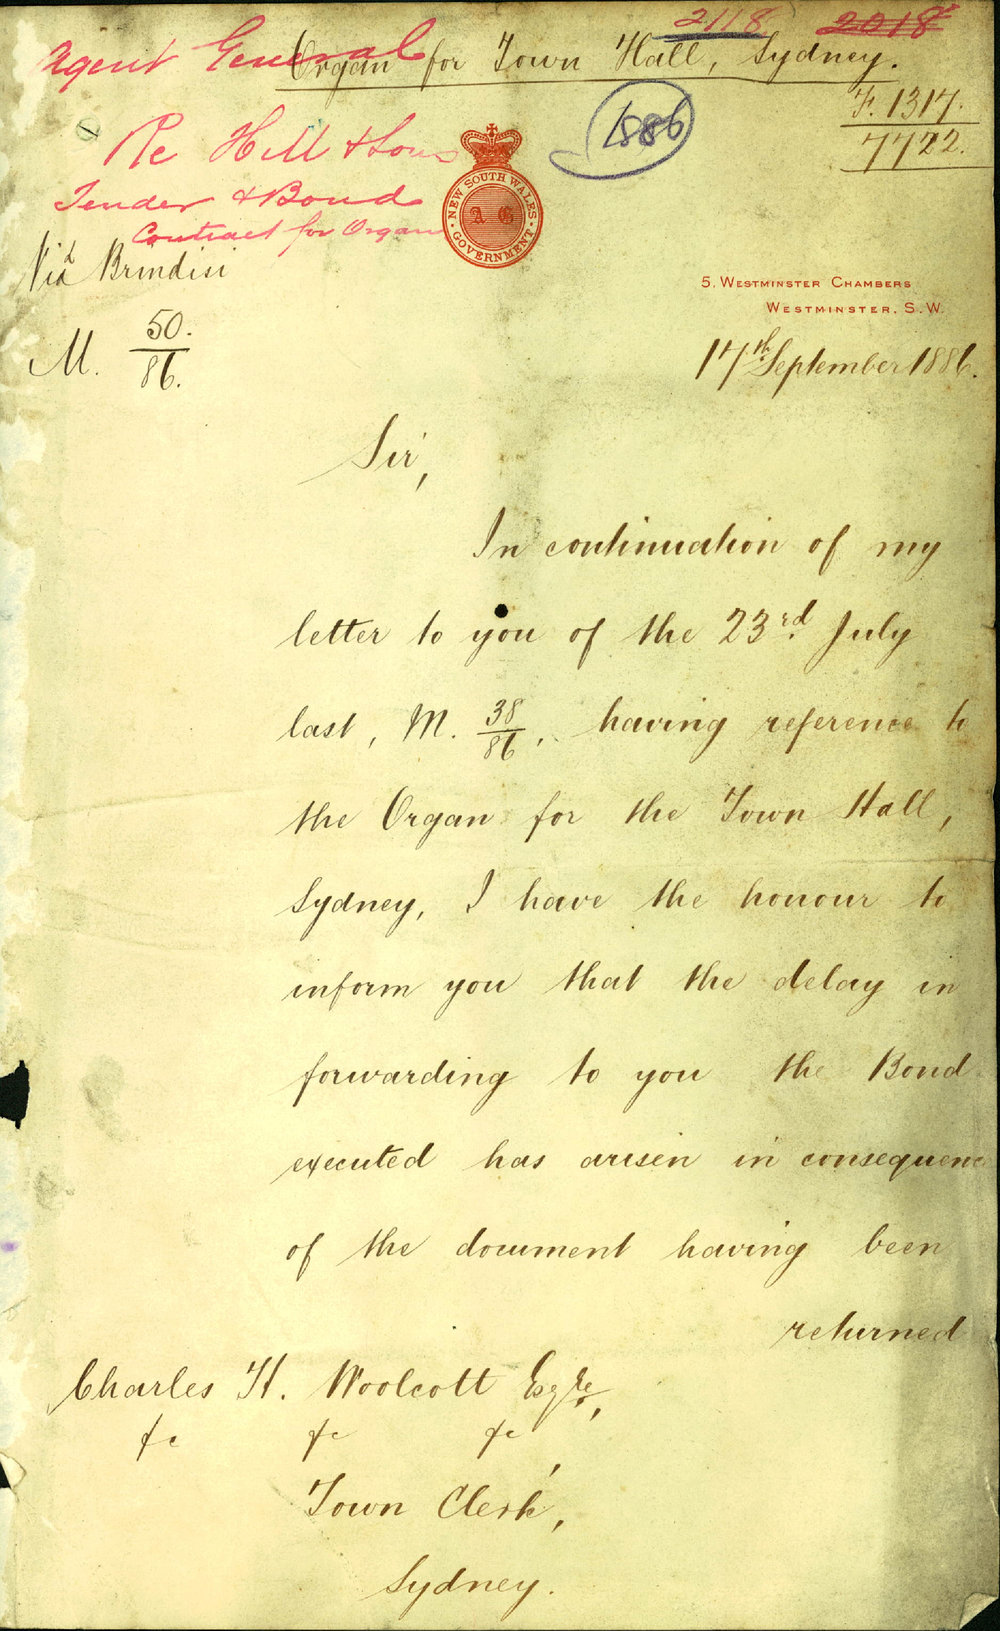 2118 2018
Agent General
Organ for Town Hall, Sydney.
F. 1317.
7722.
1886
Re Hill & Sons
Tender & Bond
Contract for Organ
NEW SOUTH WALES
A G
GOVERNMENT
Viâ Brindisi
5, WESTMINSTER CHAMBERS
WESTMINSTER, S.W.
M. 50/86.
17th September 1886.
Sir,
In continuation of my
letter to you of the 23rd July
last, M. 38/86, having reference to
the Organ for the Town Hall,
Sydney, I have the honour to
inform you that the delay in
forwarding to you the Bond
executed has arisen in consequence
of the document having been
returned
Charles H. Woolcott Esqre,
&c &c &c,
Town Clerk,
Sydney.